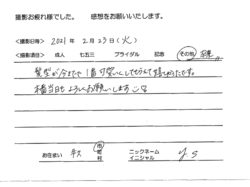 撮影お疲れ様でした。 感想をお願いいたします。
<撮影日時> 2021年 2月 23日(火)
<撮影項目> 成人 七五三 ブライダル 記念 その他
髪型が今までで1番可愛いくしてもらえて嬉しかったです。
当日もよろしくお願いします
お住まい 市 町 村 ニックネーム イニシャル y.s